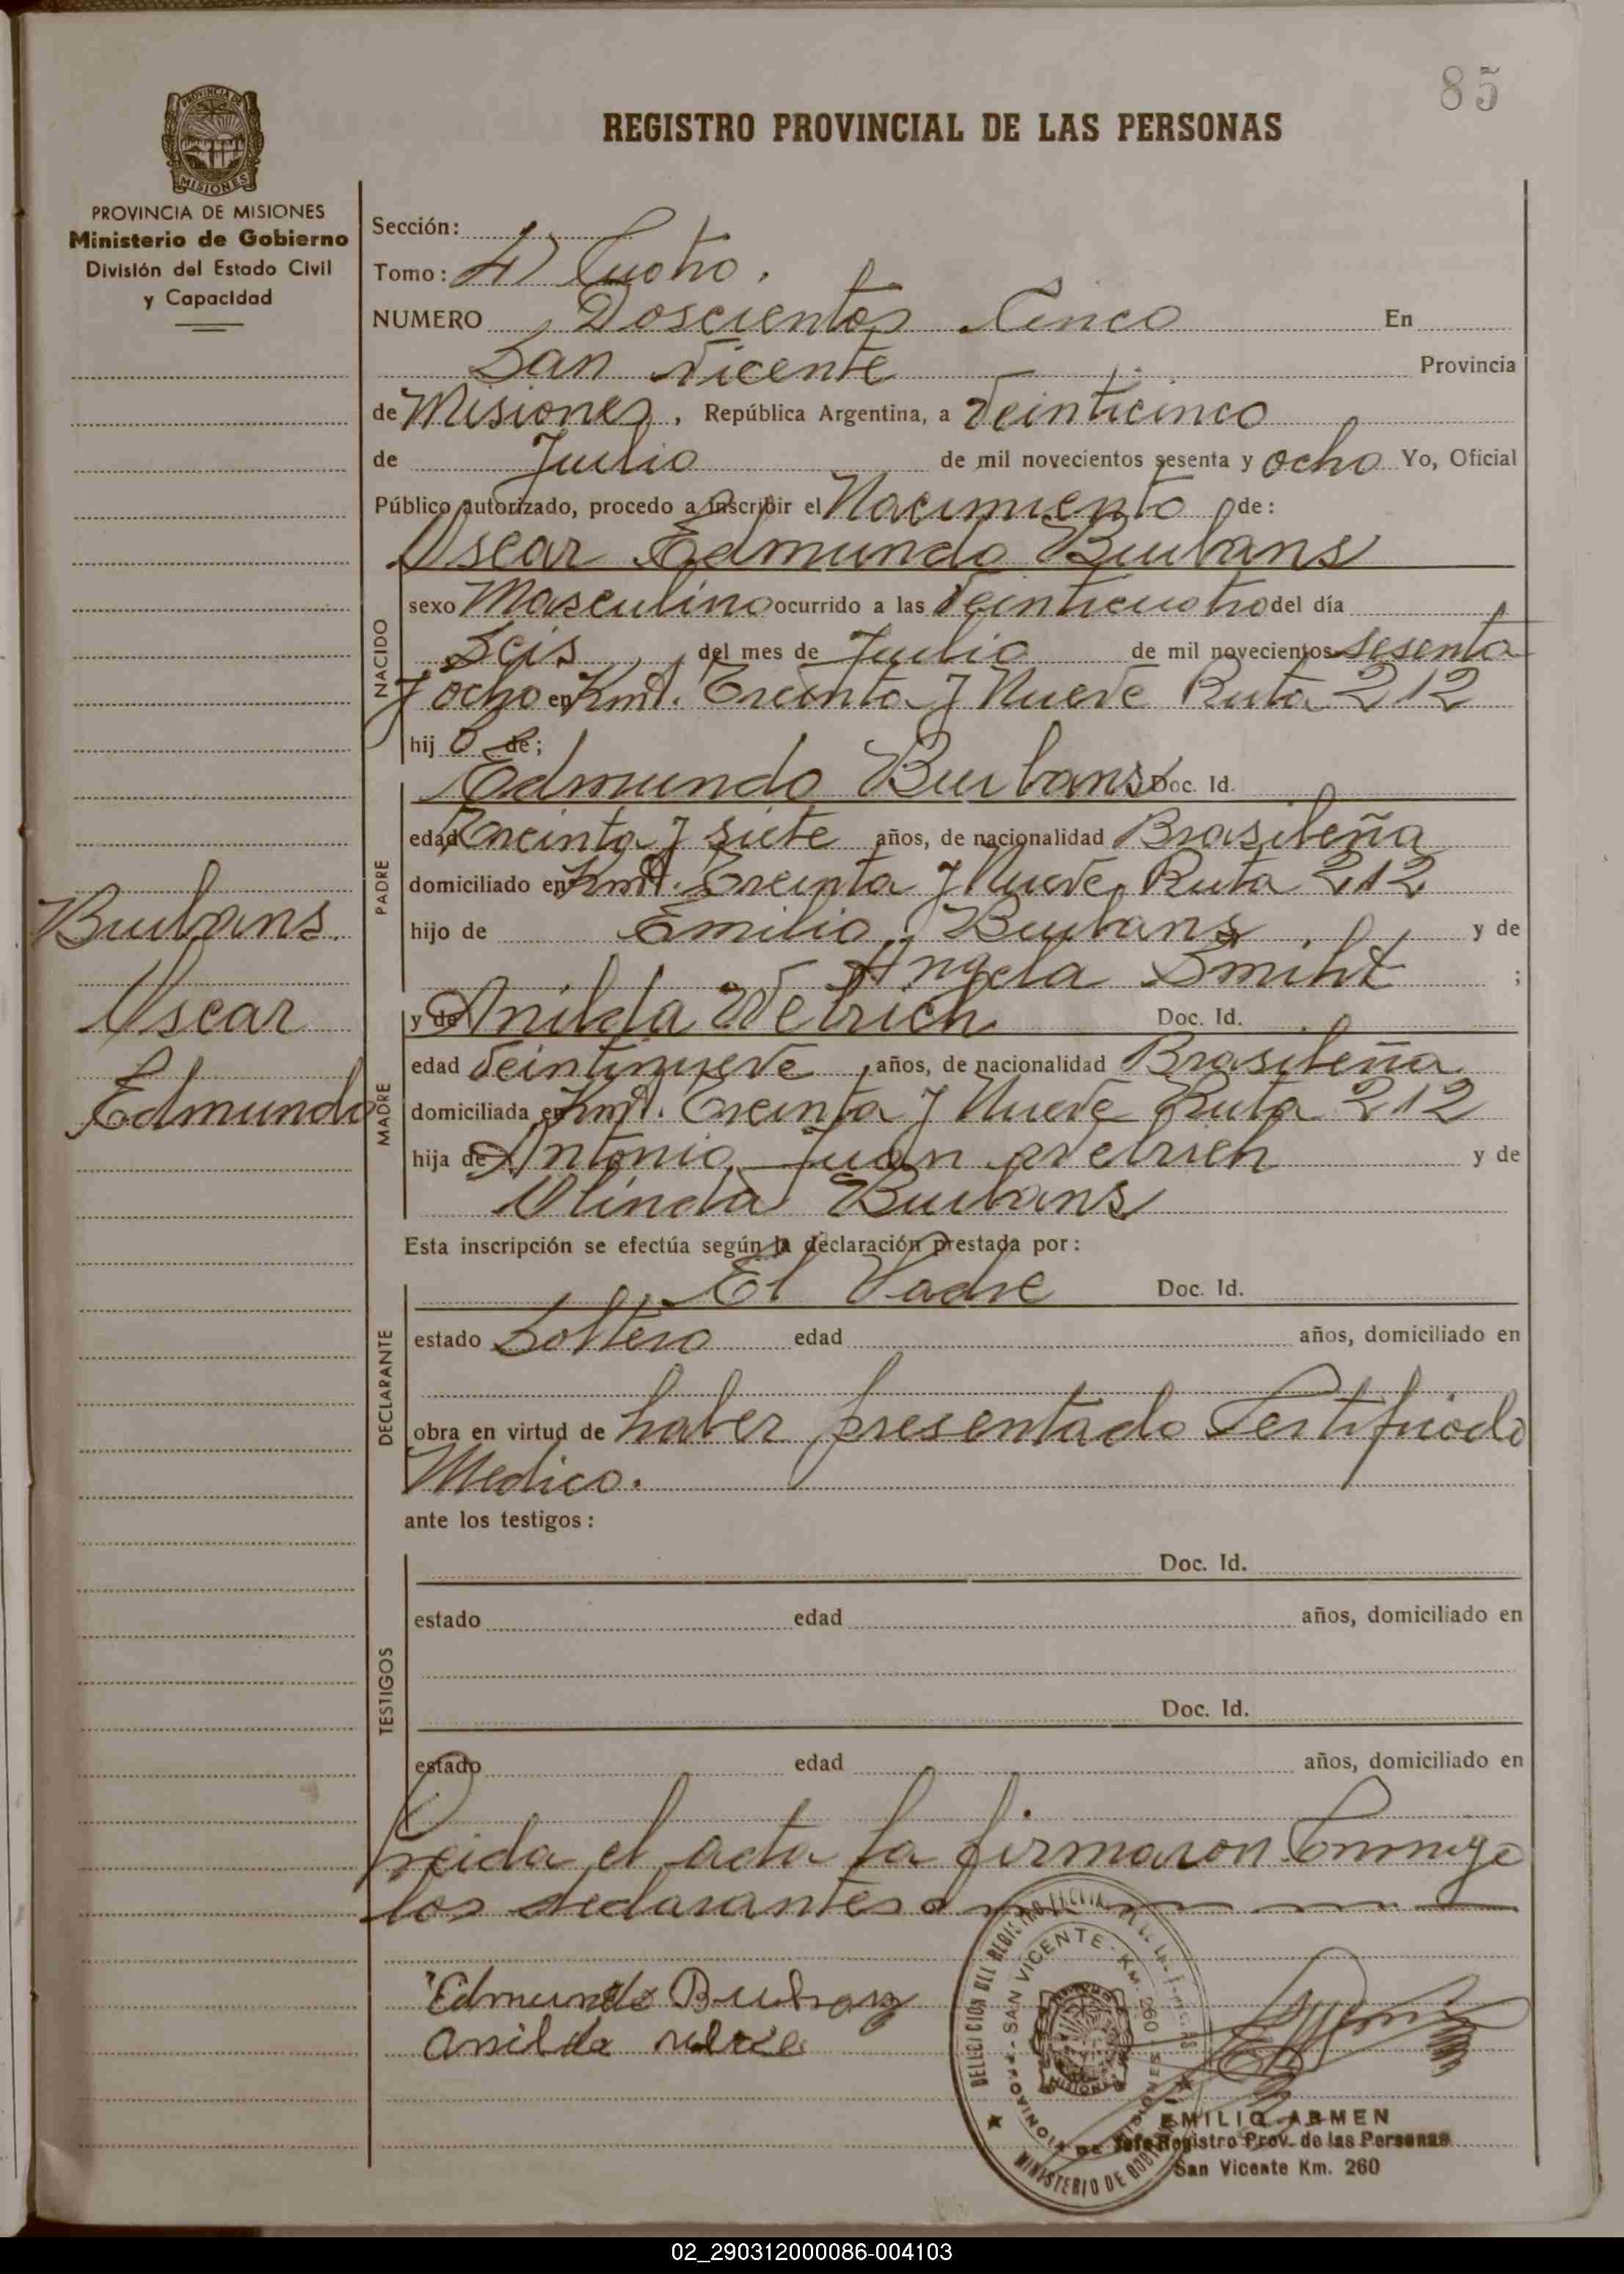 85
REGISTRO PROVINCIAL DE LAS PERSONAS
PROVINCIA DE
MISIONES
PROVINCIA DE MISIONES
Ministerio de Gobierno
División del Estado Civil
y Capacidad
Sección:
Tomo: 4) Cuatro.
NUMERO Doscientos Cinco En
San Vicente Provincia
de Misiones, República Argentina, a Veinticinco
de Julio de mil novecientos sesenta y ocho Yo, Oficial
Público autorizado, procedo a inscribir el Nacimiento de:
Oscar Edmundo Buubans
NACIDO
sexo Masculino ocurrido a las Veinticuatro del día
Seis del mes de Julio de mil novecientos sesenta
y ocho en Kmt. Treinta y Nueve Ruta 212
hij o de;
PADRE
Edmundo Buubans Doc. Id.
edad Treinta y siete años, de nacionalidad Brasileña
domiciliado en Kmt. Treinta y Nueve Ruta 212
hijo de Emilio Buubans y de
Angela Smiht ;
Buubans.
Oscar
Edmundo
MADRE
y de Anilda Welrich Doc. Id.
edad Veintinueve, años, de nacionalidad Brasileña
domiciliada en Kmt. Treinta y Nueve Ruta 212
hija de Antonio Juan Welrich y de
Olinda Buubans
Esta inscripción se efectúa según la declaración prestada por:
DECLARANTE
El Padre Doc. Id.
estado Soltero edad años, domiciliado en
obra en virtud de haber presentado Certificado
Medico.
ante los testigos:
TESTIGOS
Doc. Id.
estado edad años, domiciliado en
Doc. Id.
estado edad años, domiciliado en
Leida el acta la firmaron Conmigo
los declarantes
Edmundo
Anilda
SAN VICENTE - KM. 260
PROVINCIA DE MISIONES
MINISTERIO DE GOBIERNO
EMILIO ARMEN
Jefe Registro Prov. de las Personas
San Vicente Km. 260
02_290312000086-004103